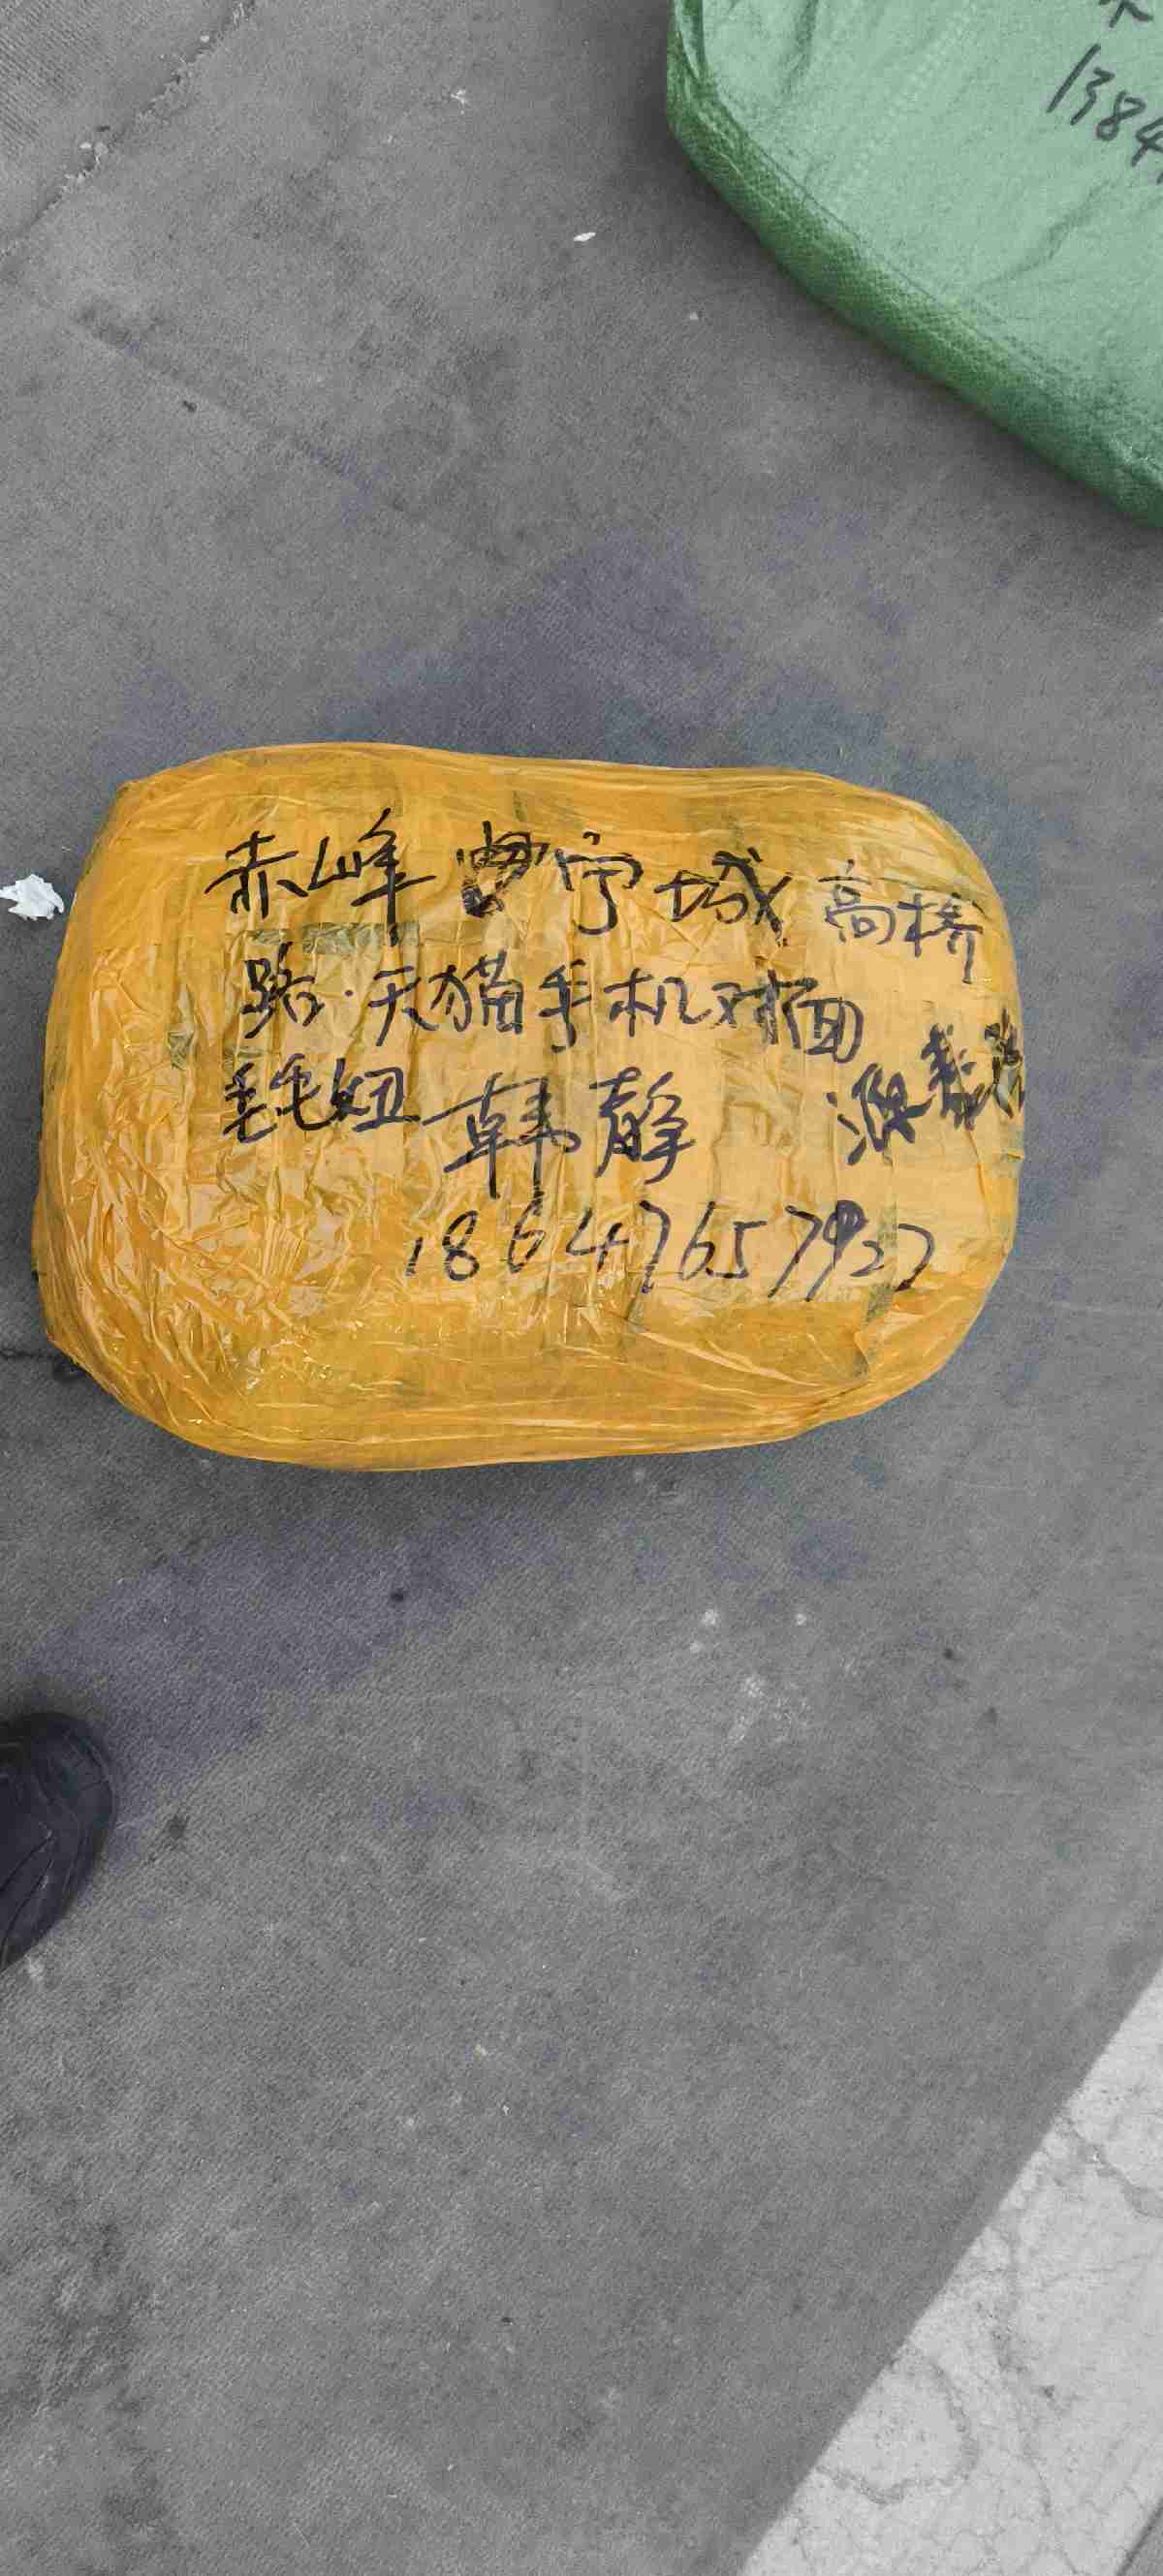 1384
赤峰 宁城 高桥
路·天猫手机对面
毛毛妞 韩静 源
18647657927